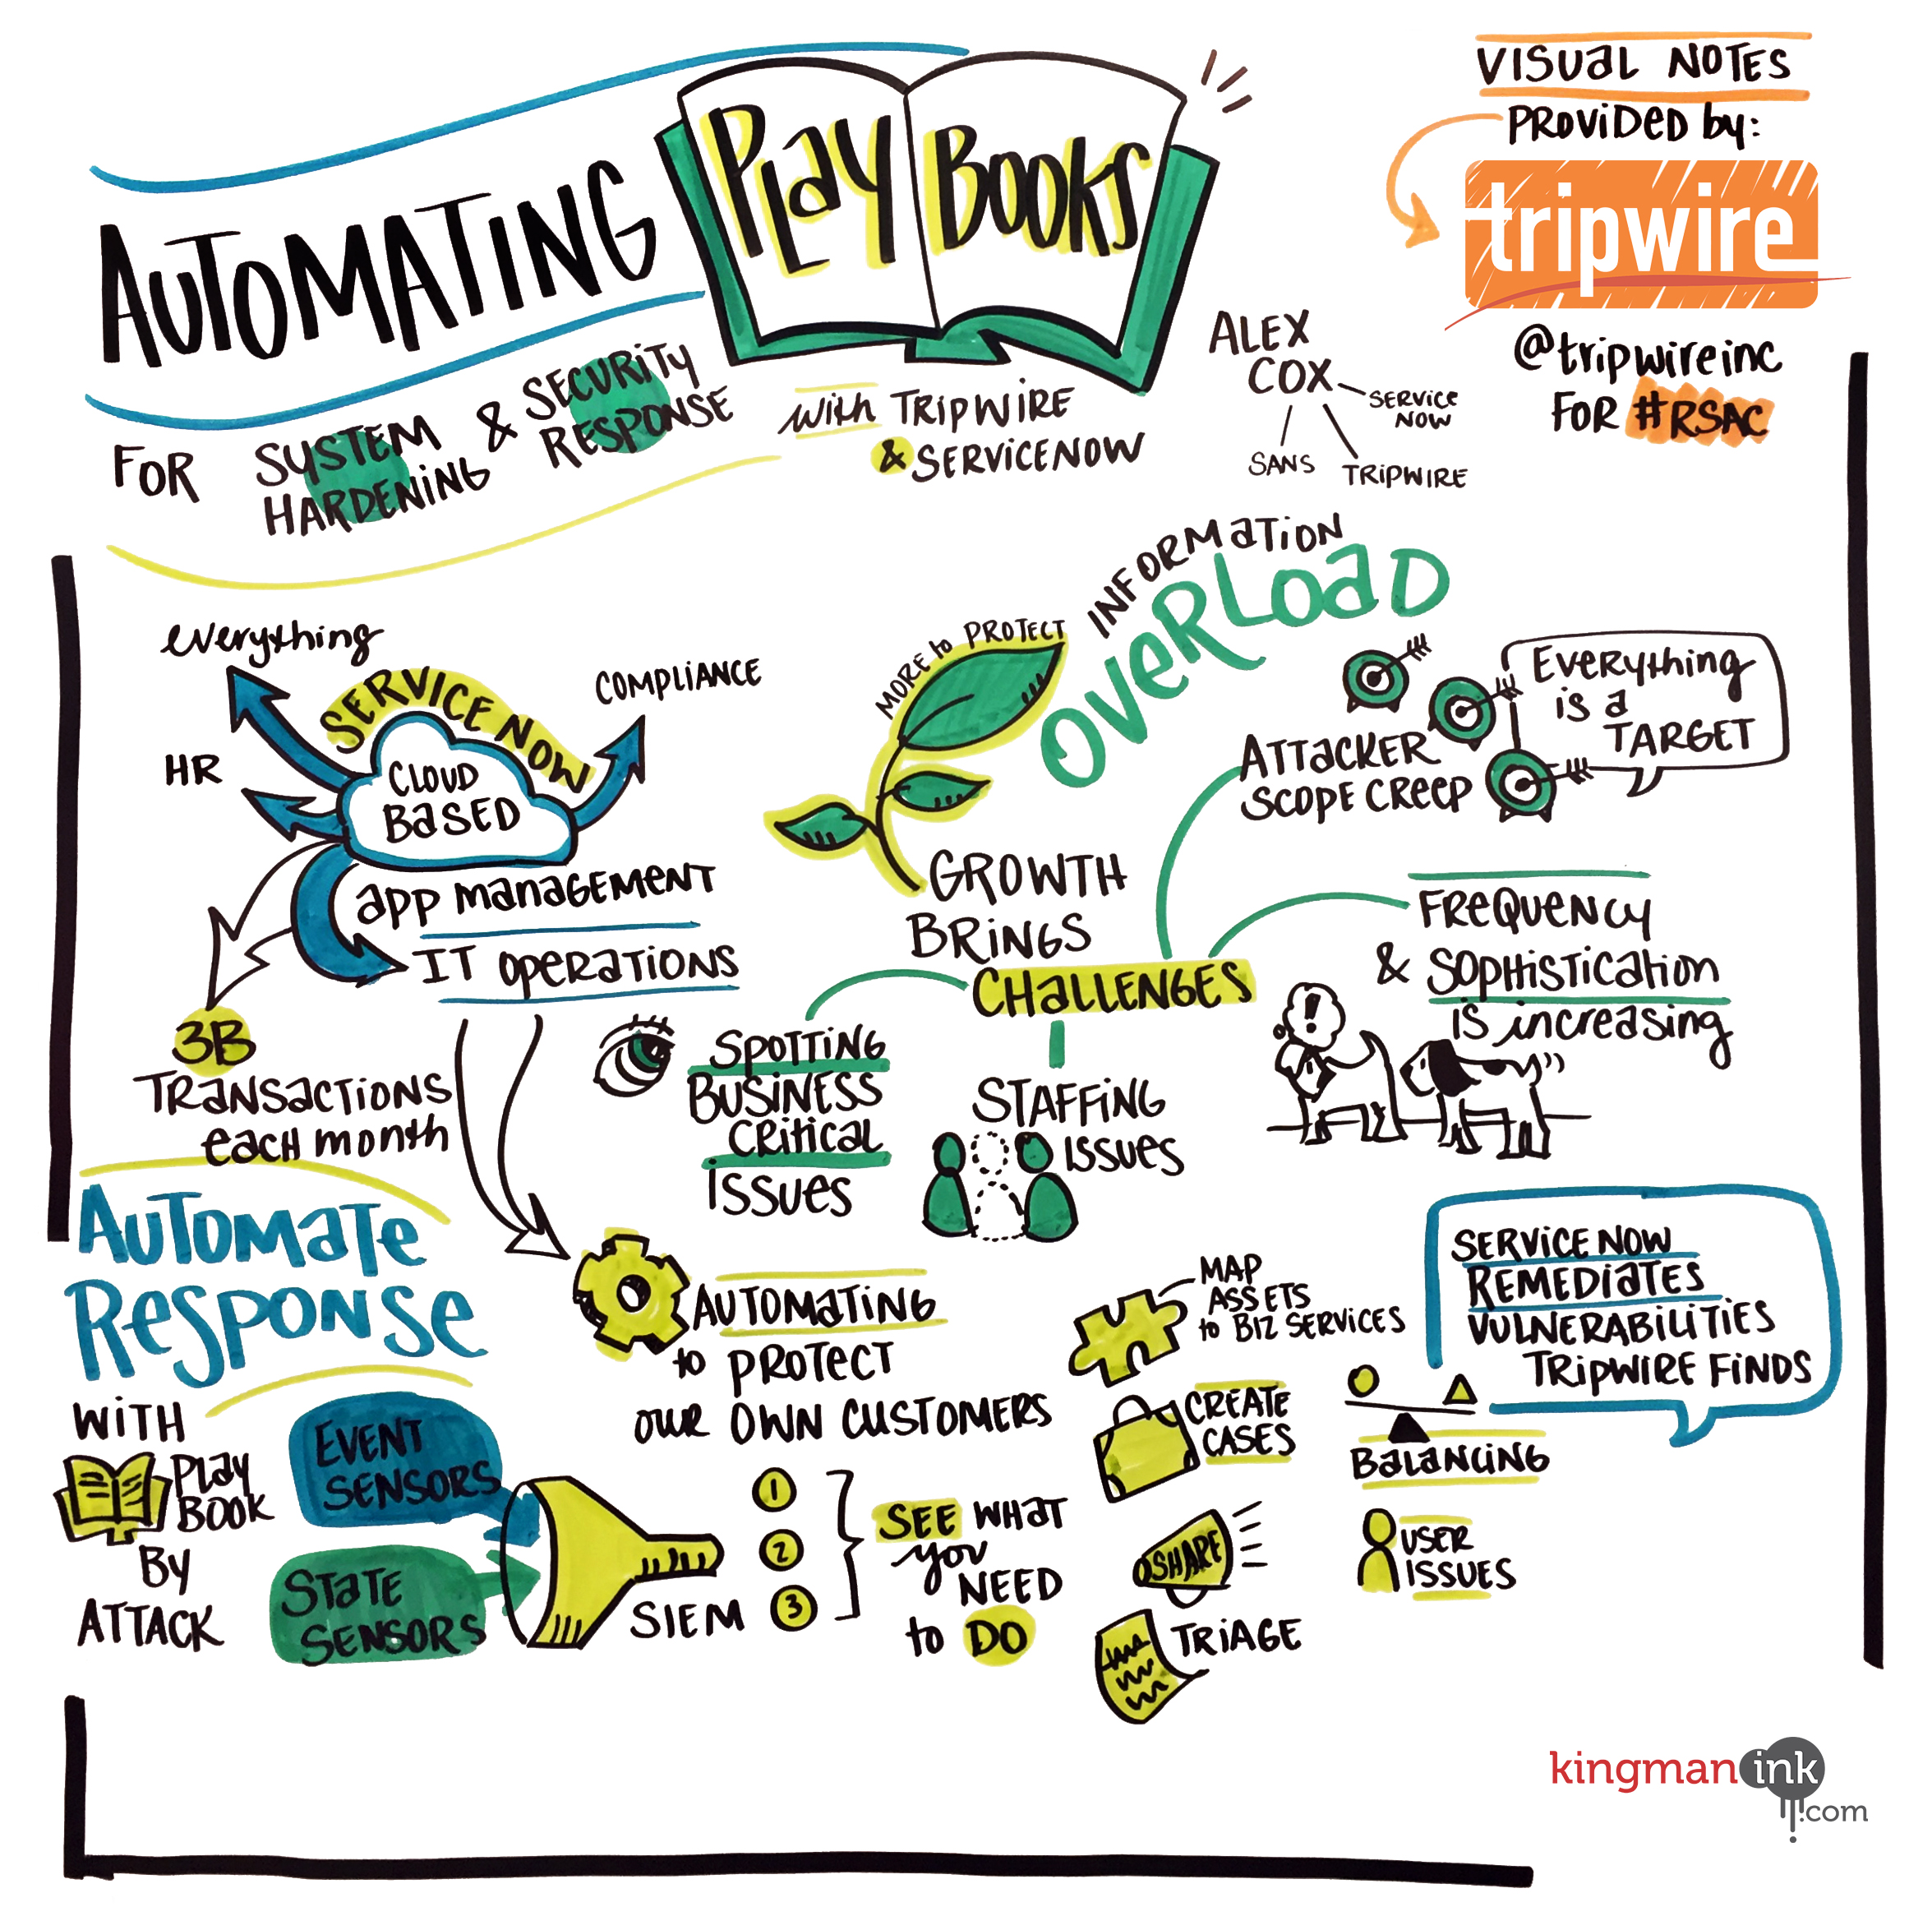 AUTOMATING
PLay BOOKS
FOR SYSTEM
HARDENING
& SECURITY
RESPONSE
with TRIPWIRE
& SERVICENOW
ALEX
COX
SERVICE
NOW
SANS
TRIPWIRE
VISUAL NOTES
PROVIDED by:
tripwire
@tripwireinc
FOR #RSAC
everything
SERVICE NOW
COMPLIANCE
HR
CLOUD
BASED
APP MANAGEMENT
IT OPERATIONS
3B
TRANSACTIONS
each month
MORE to PROTECT
INFORMATION
OVERLOAD
GROWTH
BRINGS
CHALLENGES
ATTACKER
SCOPE CREEP
EVERything
is a
TARGET
FREQUENCY
& SOPHISTICATION
IS increasing
!
SPOTTING
BUSINESS
CRITICAL
ISSUES
STAFFING
ISSUES
AUTOMATE
RESPONSE
WITH
PLAY
BOOK
BY
ATTACK
EVENT
SENSORS
STATE
SENSORS
SIEM
1
2
3
SEE WHAT
you
NEED
to DO
AUTOMATING
to PROTECT
OUR OWN CUSTOMERS
MAP
ASSETS
to BIZ SERVICES
CREATE
CASES
SHARE
TRIAGE
SERVICE NOW
REMEDIATES
VULNERABILITIES
TRIPWIRE FINDS
BALANCING
USER
ISSUES
kingman ink
.com